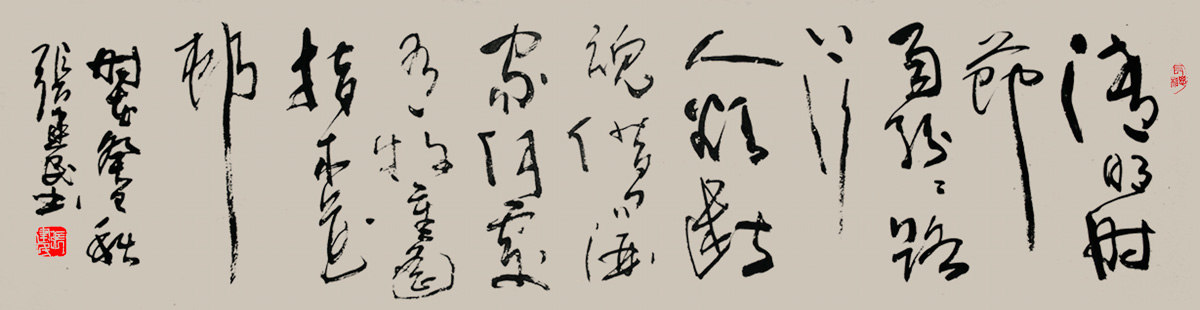 清明时
節
雨紛紛路
上行
人欲斷
魂借问酒
家何處
有牧童遥
指杏花
村
时在癸巳秋
张建民书